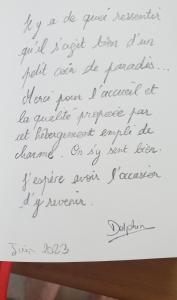 Il y a de quoi ressentir
qu'il s'agit bien d'un
petit coin de paradis...
Merci pour l'accueil et
la qualité proposée par
cet hébergement empli de
charme. On s'y sent bien.
J'espère avoir l'occasion
d'y revenir.
Delphin
Juin 2023